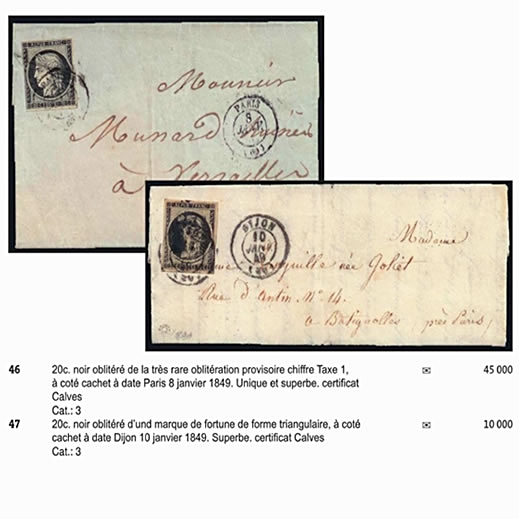 REPUB. FRANC.
Monsieur
PARIS
8
JANV.
(60)
à Versailles
REPUB. FRANC.
DIJON
10
JANV.
49
(20)
Madame
née Joliet
Rue d'Antin N° 14.
a Batignolles près Paris
46 20c. noir oblitéré de la très rare oblitération provisoire chiffre Taxe 1, ✉ 45 000
à coté cachet à date Paris 8 janvier 1849. Unique et superbe. certificat
Calves
Cat.: 3
47 20c. noir oblitéré d'und marque de fortune de forme triangulaire, à coté ✉ 10 000
cachet à date Dijon 10 janvier 1849. Superbe. certificat Calves
Cat.: 3